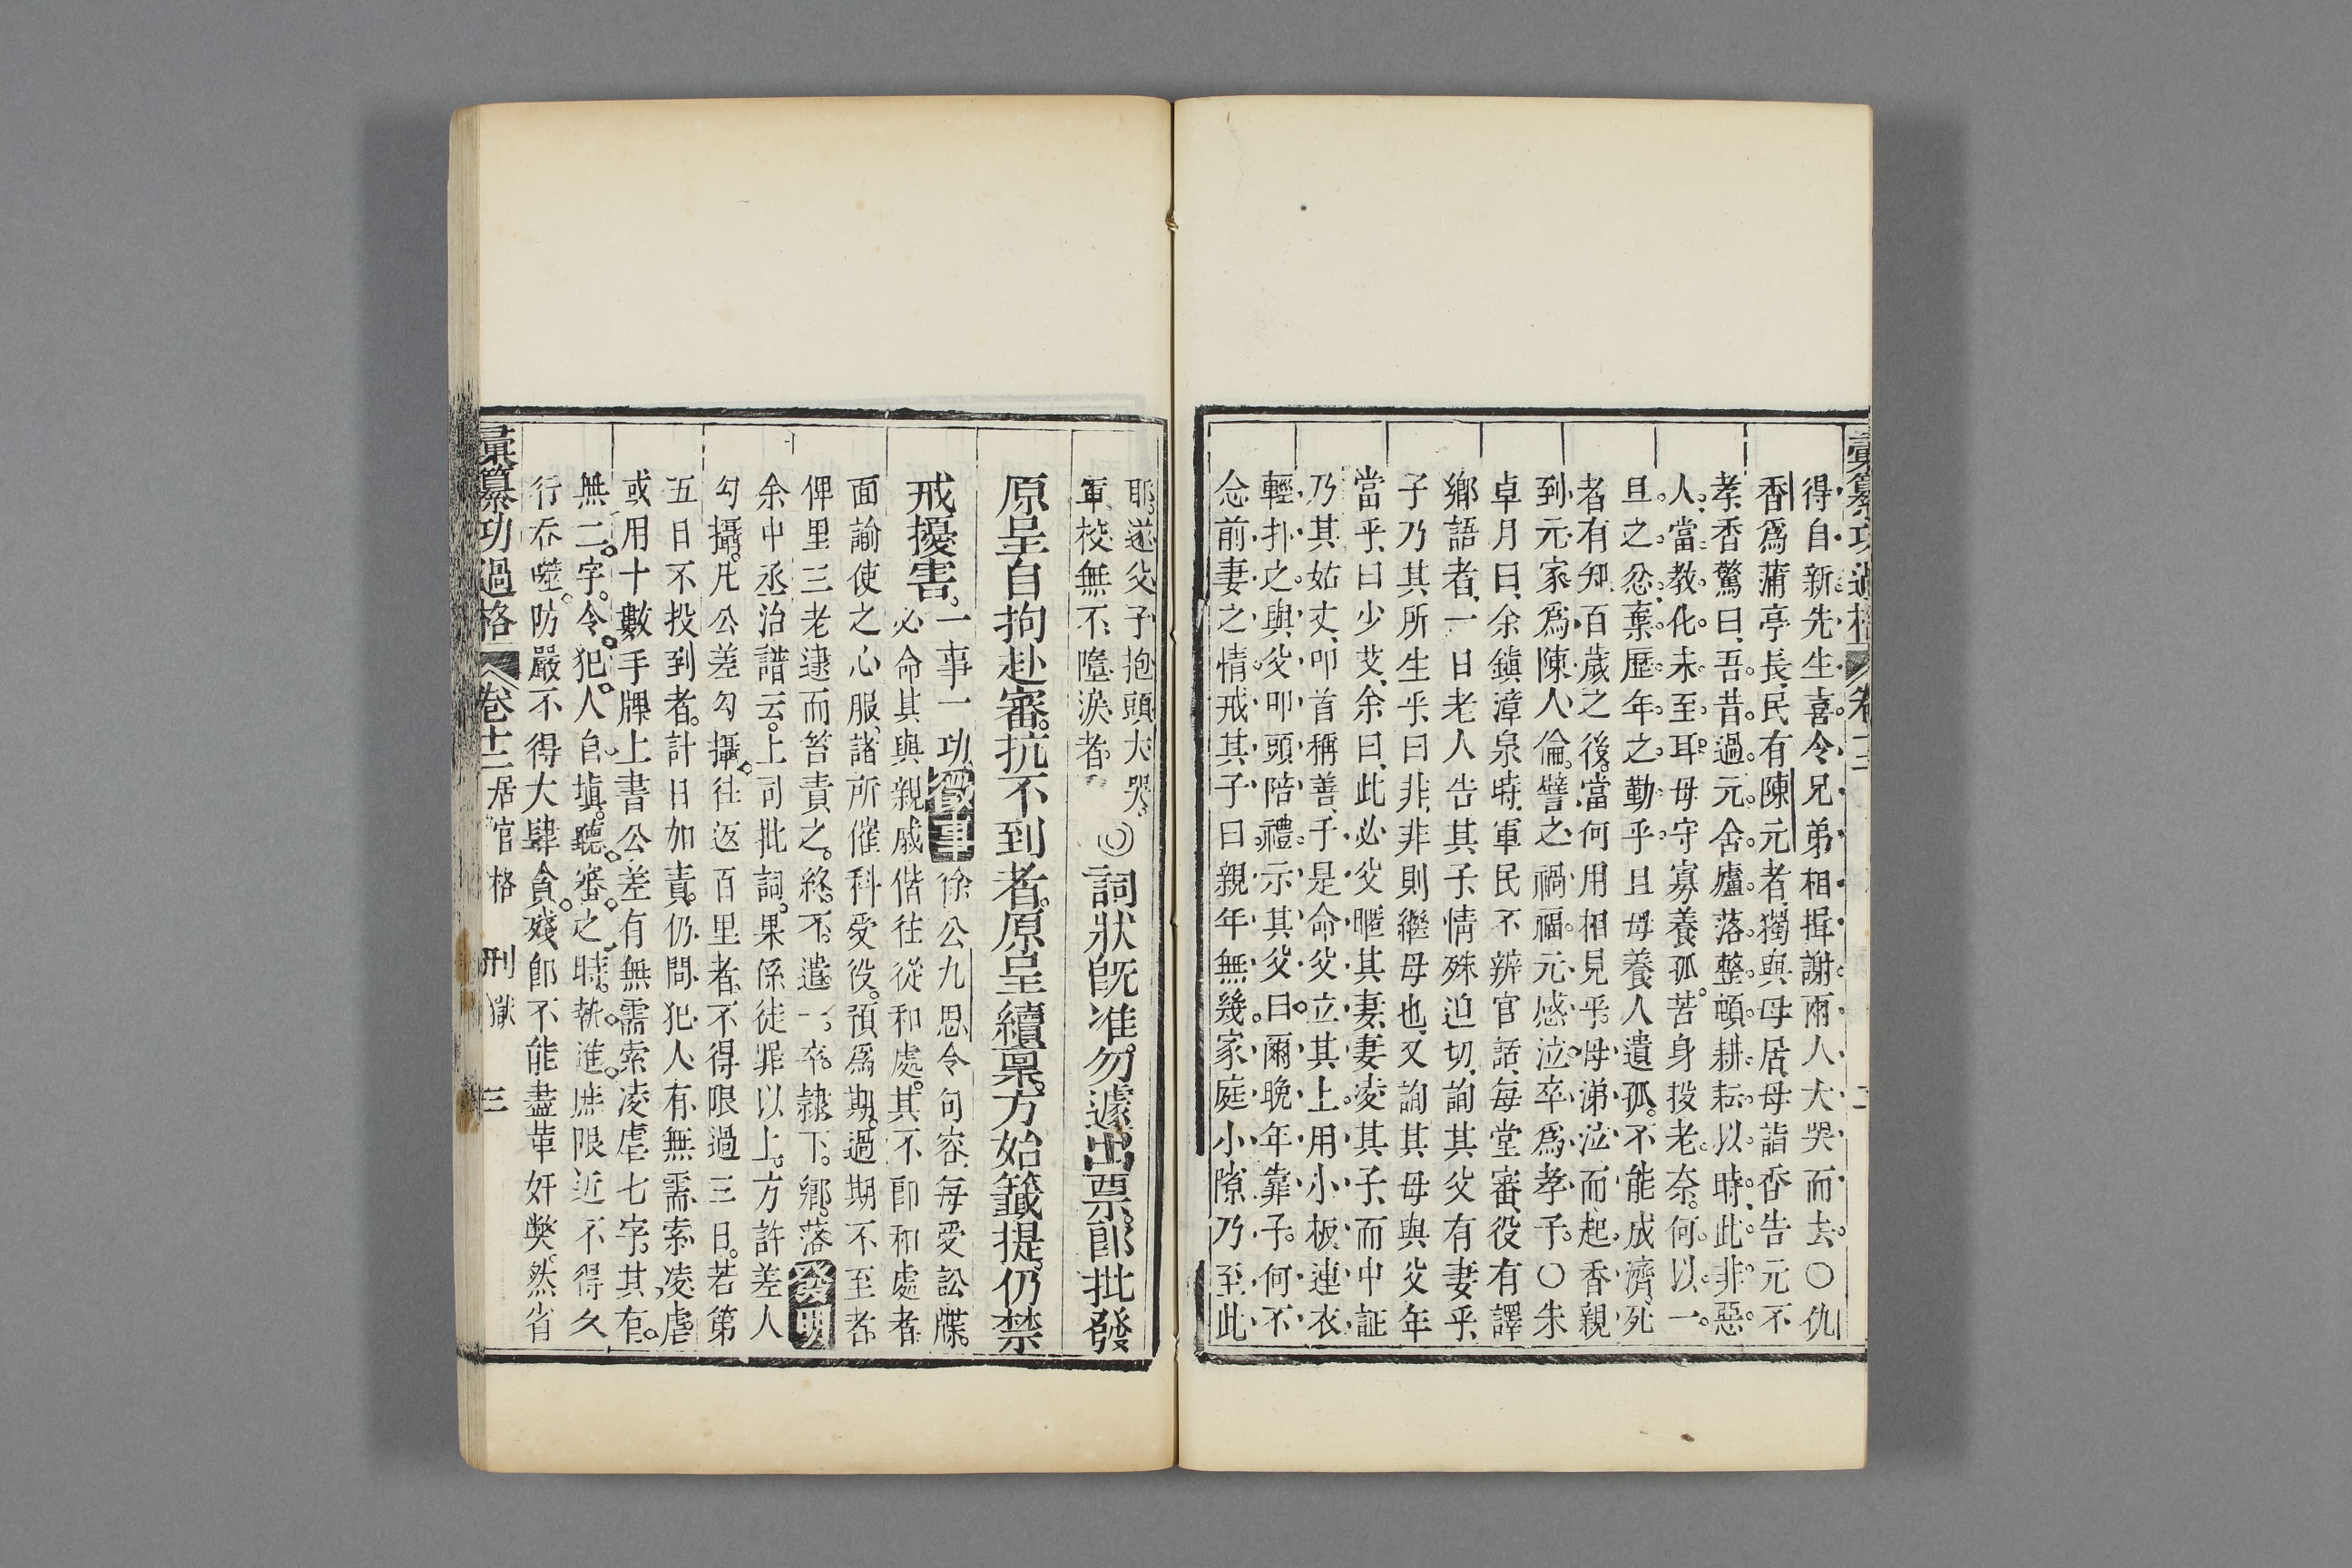 彙纂功過格 卷十二
得自新先生喜令兄弟相揖謝兩人大哭而去○仇
香爲蒲亭長民有陳元者獨與母居母詣香告元不
孝香驚曰吾昔過元舍廬落整頓耕耘以時此非惡
人當教化未至耳母守寡養孤苦身投老奈何以一
旦之忿棄歷年之勤乎且母養人遺孤不能成濟死
者有知百歲之後當何用相見乎母涕泣而起香親
到元家爲陳人倫譬之禍福元感泣卒爲孝子○朱
卓月曰余鎮漳泉時軍民不辨官話每堂審役有譯
鄉語者一日老人告其子情殊迫切詢其父有妻乎
子乃其所生乎曰非非則繼母也又詢其母與父年
當乎曰少艾余曰此必父暱其妻妻凌其子而中証
乃其姑丈叩首稱善于是命父立其上用小板連衣
輕扑之與父叩頭陪禮示其父曰爾晚年靠子何不
念前妻之情戒其子曰親年無幾家庭小隙乃至此
耶遂父子抱頭大哭
軍校無不墮淚者
◎詞狀旣准勿遽出票卽批發
原呈自拘赴審抗不到者原呈續禀方始籤提仍禁
戒擾害一事一功
徵事 徐公九思令句容每受訟牒
必命其與親戚偕往從和處其不卽和處者
面諭使之心服諸所催科受役預爲期過期不至者
俾里三老逮而笞責之終不遣一卒隸下鄉落 發明
余中丞治譜云上司批詞果係徒罪以上方許差人
勾攝凡公差勾攝往返百里者不得限過三日若第
五日不投到者計日加責仍問犯人有無需索凌虐
或用十數手牌上書公差有無需索凌虐七字其有
無二字令犯人自塡聽審之時執進庶限近不得久
行吞噬防嚴不得大肆貪殘卽不能盡革奸獘然省
彙纂功過格 卷十二 居官格 刑獄 三